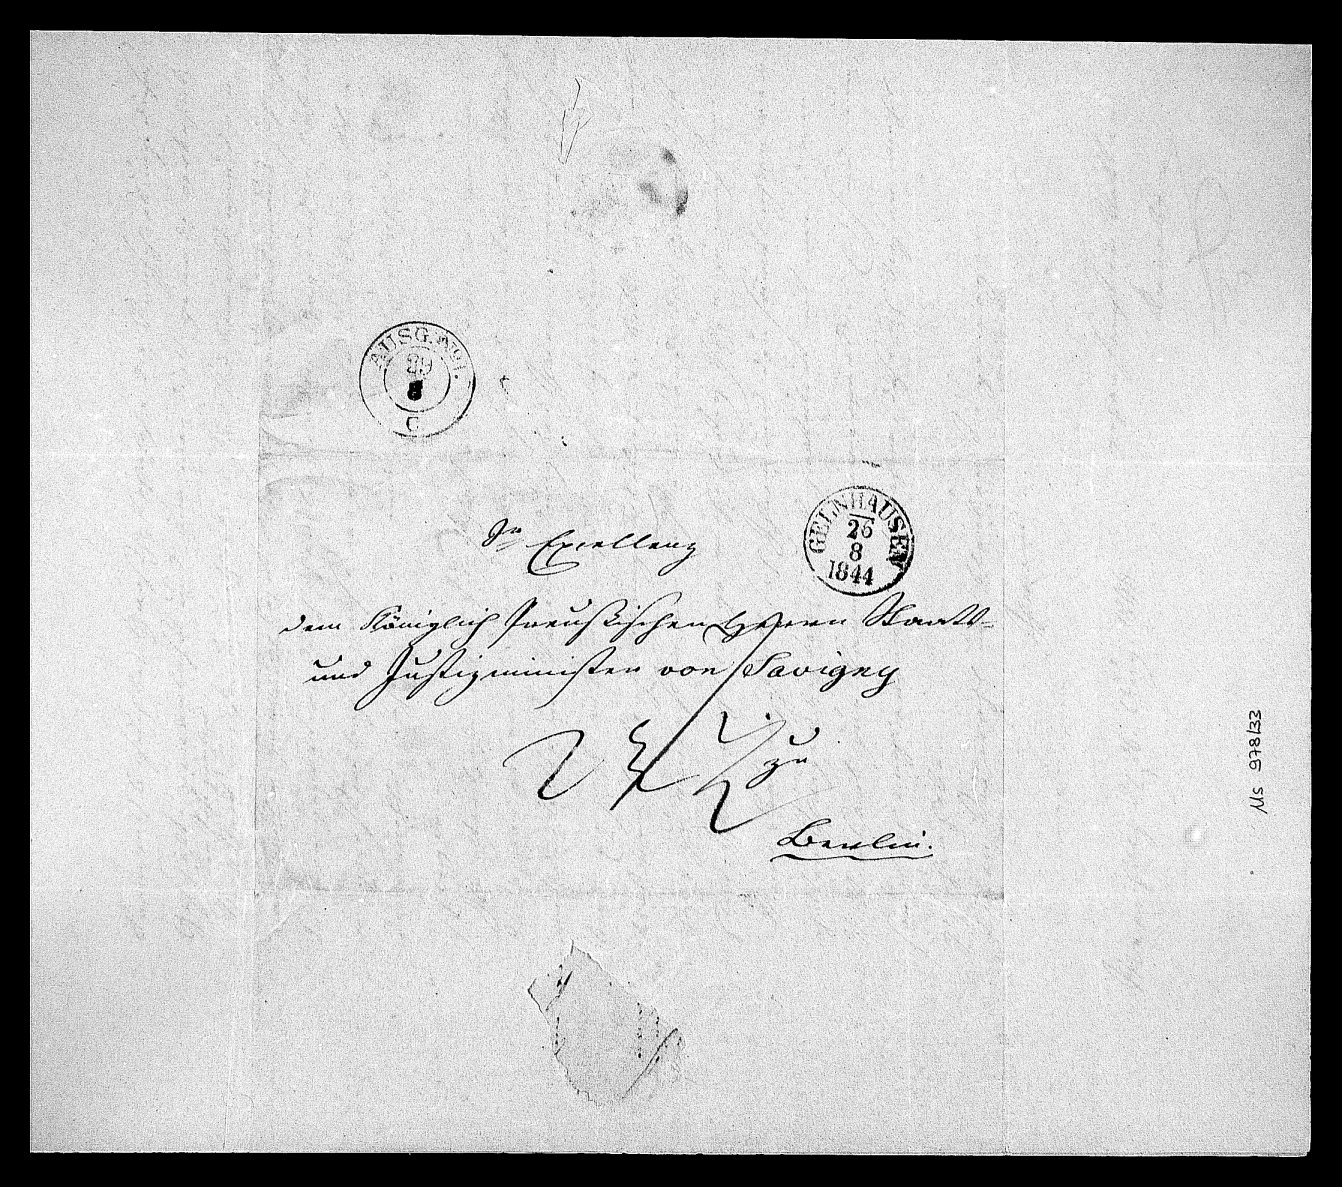 AUSG. No 1.
29
8
C
GELNHAUSEN
26
8
1844
Sr Excellenz
dem Königlich Preußischen Herrn Staats-
und Justizminister von Savigny
zu
Berlin.
Ms 978/33